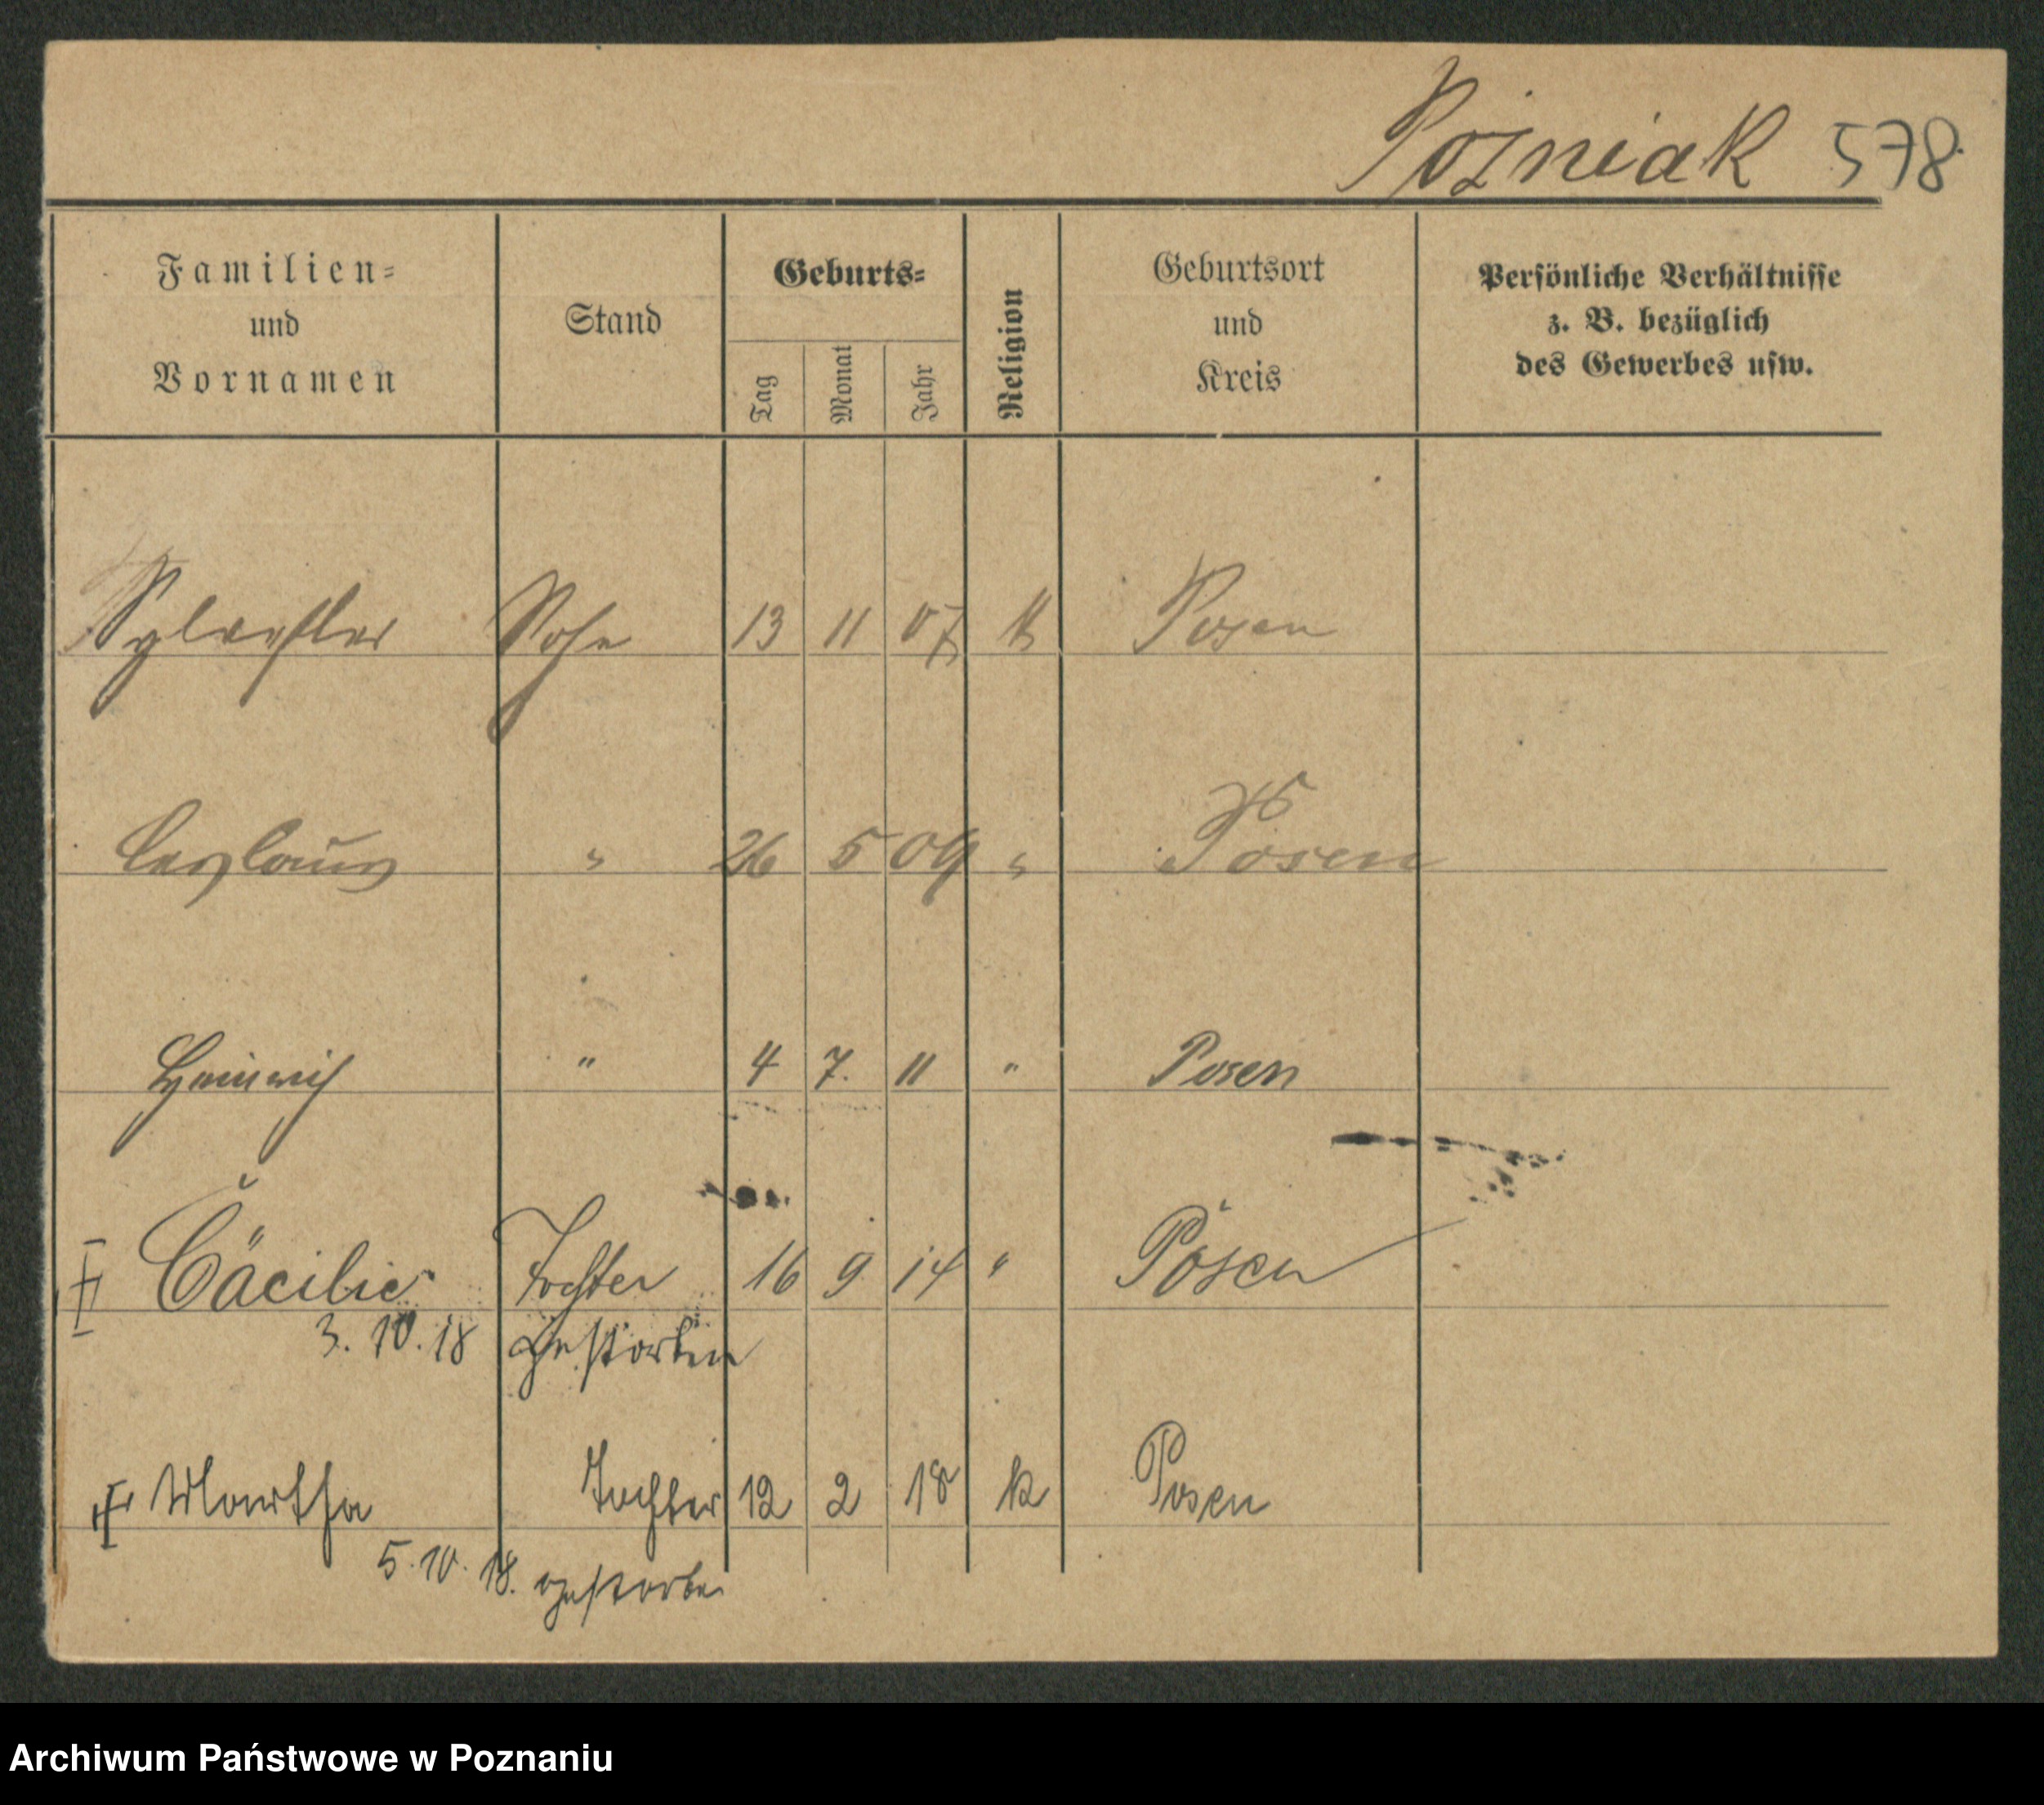 Poźniak 578
Familien- und Vornamen
Stand
Geburts-
Tag
Monat
Jahr
Religion
Geburtsort und Kreis
Persönliche Verhältnisse z. B. bezüglich des Gewerbes usw.
Sylvester Sohn 13 11 07 K Posen
Ceslaus " 26 5 09 " Posen
Heinrich " 4 7. 11 " Posen
Cäcilie Tochter 16 9 14 " Posen
3. 10. 18 Gestorben
Martha Tochter 12 2 18 k Posen
5. 10. 18. gestorben
Archiwum Państwowe w Poznaniu